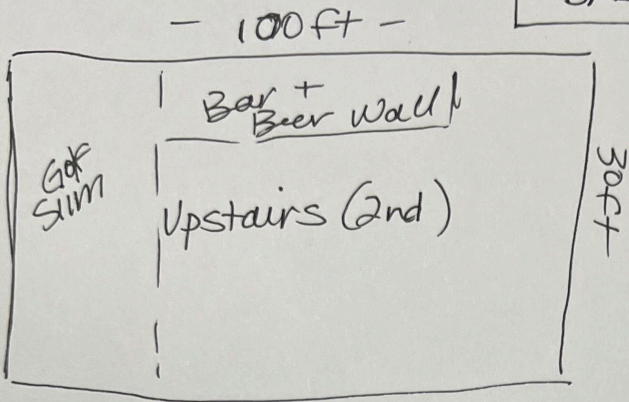 - 100ft -
Bar +
Beer Wall
Golf
SIIM
Upstairs (2nd)
30ft